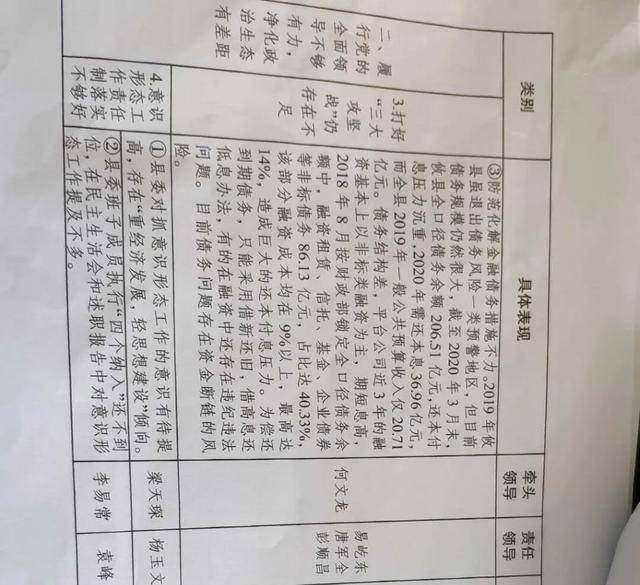 类别
具体表现
牵头
领导
责任
领导
二、履
行党的
全面领
导不够
有力,
净化政
治生态
有差距
3.打好
“三大
攻坚
战”仍
存在不
足
③防范化解金融债务措施不力。2019年攸
县虽退出债务风险一类预警地区,但目前
债务规模仍然很大,截至2020年3月末,
攸县全口径债务余额206.51亿元,还本付
息压力沉重,2020年需还本息36.96亿元,
而全县2019年一般公共预算收入仅20.71
亿元。债务结构差,平台公司近3年的融
资基本上以非标类融资为主,期短息高,
2018年8月按财政部锁定全口径债务余
额中,融资租赁、信托、基金、企业债券
等非标债务86.13亿元,占比达40.33%,
该部分融资成本均在9%以上,最高达
14%,造成巨大的还本付息压力。为偿还
到期债务,只能采用借新还旧,借高息还
低息办法,有的在融资中还存在违纪违法
问题。目前债务问题存在资金断链的风
险。
何文龙
易屹东
唐军全
彭顺昌
4.意识
形态工
作责任
制落实
不够好
①县委对抓意识形态工作的意识有待提
高,存在“重经济发展,轻思想建设”倾向。
梁天琛
杨玉文
②县委班子成员执行“四个纳入”还不到
位,在民主生活会和述职报告中对意识形
态工作提及不多。
李易常
袁峰